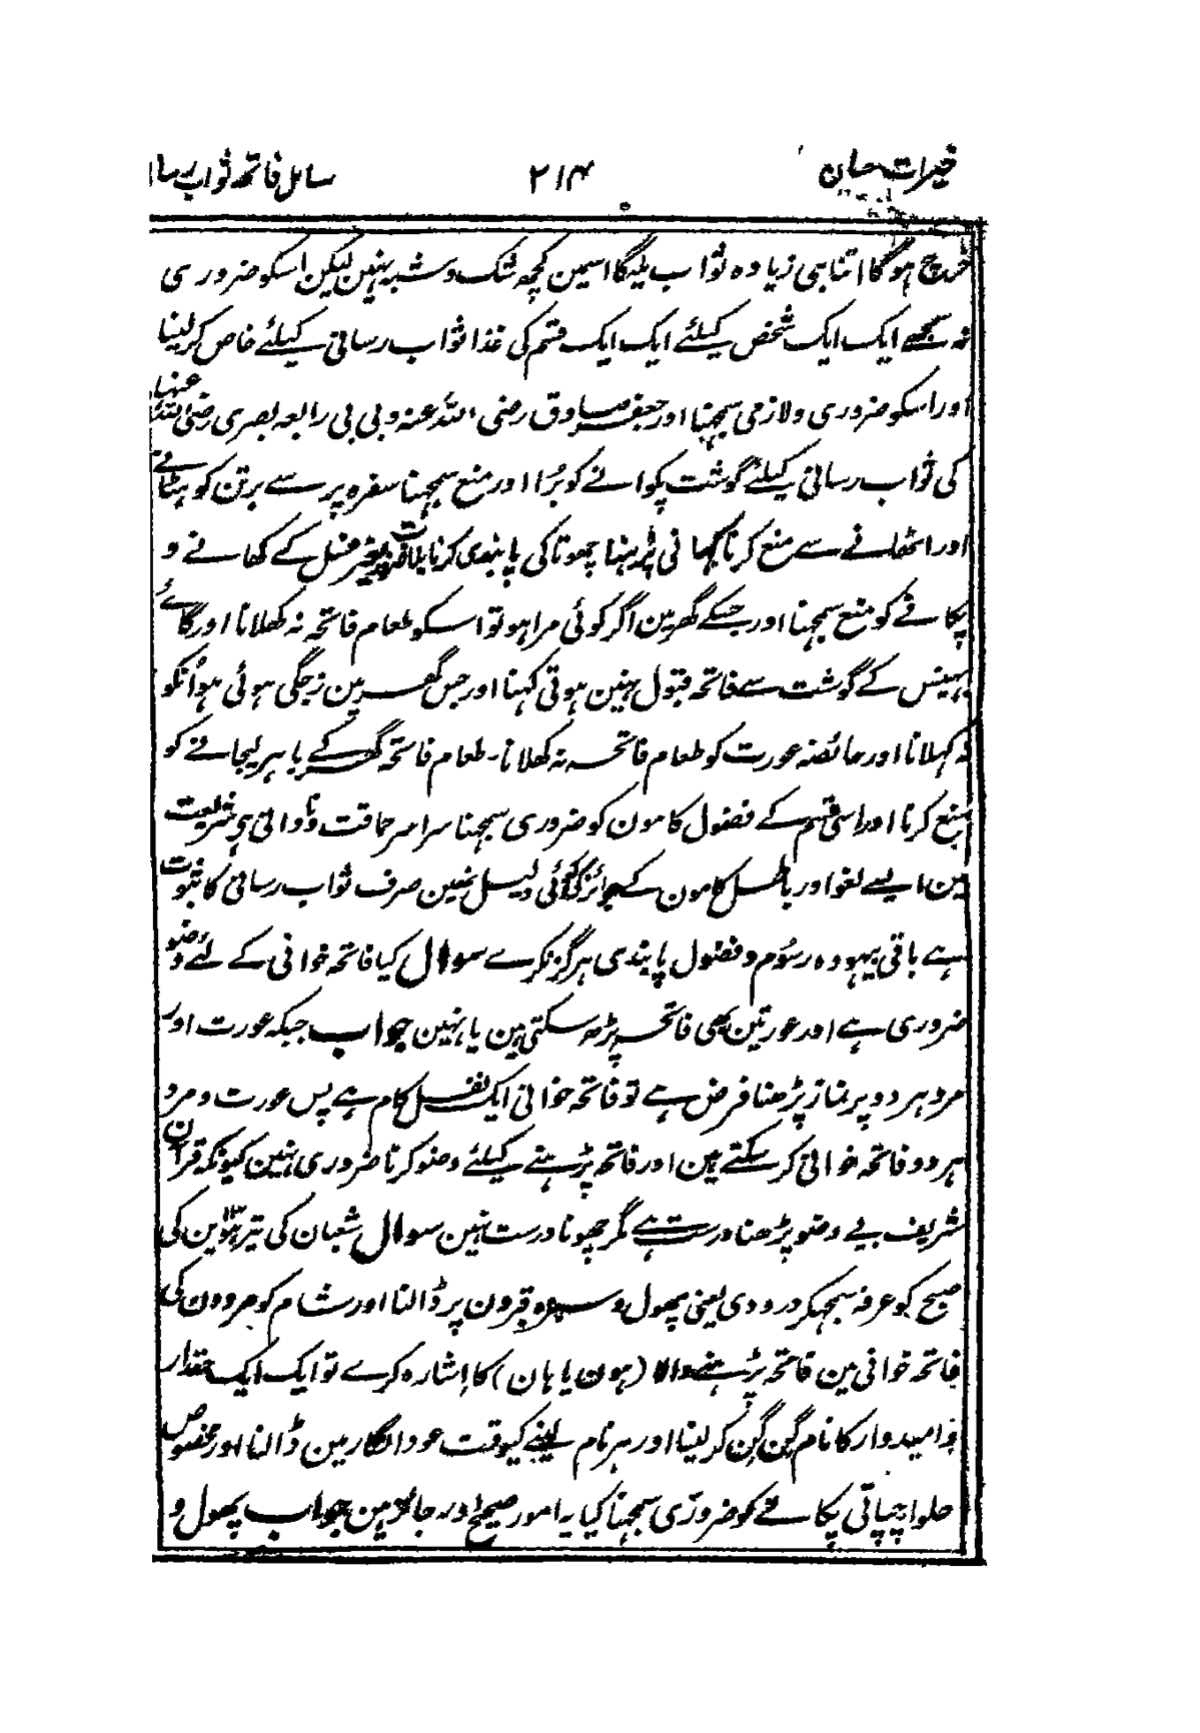 خیرات جان ۲۱۴ مسائل فاتحہ ثواب رسا
خرچ ہوگا اتنا ہی زیادہ ثواب ملیگا اسمین کچھ شک و شبہ نہین لیکن اسکو ضروری
نہ سمجھے ایک ایک شخص کیلئے ایک ایک قسم کی غذا ثواب رسانی کیلئے خاص کر لینا
اور اسکو ضروری ولازمی سمجہنا اور جعفر صادق رضی اللہ عنہ و بی بی رابعہ بصری رضی اللہ عنہا
کی ثواب رسانی کیلئے گوشت پکوانے کو بُرا اور منع سمجہنا سفرہ پر سے برتن کو ہٹانے
اور اٹھانے سے منع کرنا کہانی پڑہنا چھوتا کی پابندی کرنا بغیر غسل کے کھانے و
پکانے کو منع سمجہنا اور جسکے گھرمین اگر کوئی مرا ہو تو اسکو طعام فاتحہ نہ کھلانا اور گائے
بہینس کے گوشت سے فاتحہ قبول نہین ہوتی کہنا اور جس گھر مین زچگی ہوئی ہو اُنکو
نہ کہلانا اور حائضہ عورت کو طعام فاتحہ نہ کھلانا۔ طعام فاتحہ گھر کے باہر لیجانے کو
منع کرنا اور اسی قسم کے فضول کامون کو ضروری سمجہنا سراسر حماقت و نادانی ہی شریعت
مین ایسے لغو اور باطل کامون کے جواز کی کوئی دلیل نہین صرف ثواب رسانی کا ثبوت
ہے باقی بیہودہ رسُوم و فضول پابندی ہرگز نکرے سوال کیا فاتحہ خوانی کے لئے وضو
ضروری ہے اور عورتین بھی فاتحہ پڑھ سکتی ہین یا نہین جواب جبکہ عورت اور
مرد ہر دو پر نماز پڑھنا فرض ہے تو فاتحہ خوانی ایک نفل کام ہے پس عورت و مرد
ہر دو فاتحہ خوانی کر سکتے ہین اور فاتحہ پڑہنے کیلئے وضو کرنا ضروری نہین کیونکہ قرآن
شریف بے وضو پڑھنا درست ہے مگر چھونا درست نہین سوال شعبان کی تیرہوین کی
صبح کو عرفہ سمجہکر درودی یعنی پھول و سبزہ قبرون پر ڈالنا اور شام کو مردون کی
فاتحہ خوانی مین فاتحہ پڑہنے والا (ہون یا ہان) کا اشارہ کرے تو ایک ایک مقدار
و امیدوار کا نام گن گن کر لینا اور ہر نام لینے کیوقت عود انگار مین ڈالنا اور مخصوص
حلوا چپاتی پکانے کو ضروری سمجہنا کیا یہ امور صحیح اور جائز ہین جواب پھول و